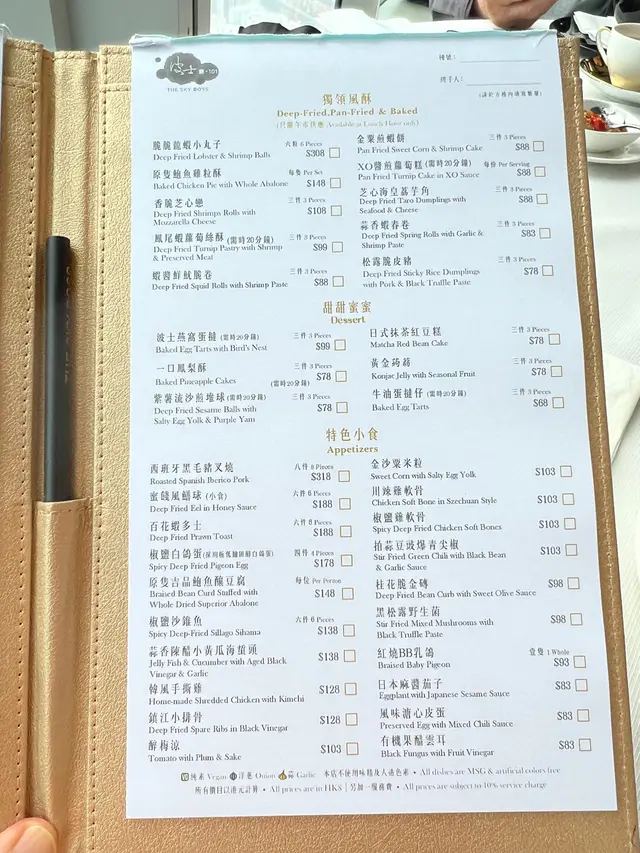 波士廳•101
THE SKY BOYS
檯號：
經手人：
(請於方格內填寫數量)
獨領風酥
Deep-Fried, Pan-Fried & Baked
(只限午市供應 Available at Lunch Hour only)
脆脆龍蝦小丸子 六粒 6 Pieces
Deep Fried Lobster & Shrimp Balls $308
原隻鮑魚雞粒酥 每隻 Per Set
Baked Chicken Pie with Whole Abalone $148
香脆芝心戀 三件 3 Pieces
Deep Fried Shrimps Rolls with $108
Mozzarella Cheese
鳳尾蝦蘿蔔絲酥 (需時20分鐘) 三件 3 Pieces
Deep Fried Turnip Pastry with Shrimp $99
& Preserved Meat
蝦醬鮮魷脆卷 三件 3 Pieces
Deep Fried Squid Rolls with Shrimp Paste $88
金粟煎蝦餅 三件 3 Pieces
Pan Fried Sweet Corn & Shrimp Cake $88
XO醬煎蘿蔔糕 (需時20分鐘) 每份 Per Serving
Pan Fried Turnip Cake in XO Sauce $88
芝心海皇荔芋角 三件 3 Pieces
Deep Fried Taro Dumplings with $88
Seafood & Cheese
蒜香蝦春卷 三件 3 Pieces
Deep Fried Spring Rolls with Garlic & $83
Shrimp Paste
松露脆皮豬 三件 3 Pieces
Deep Fried Sticky Rice Dumplings $78
with Pork & Black Truffle Paste
甜甜蜜蜜
Dessert
波士燕窩蛋撻 (需時20分鐘) 三件 3 Pieces
Baked Egg Tarts with Bird's Nest $99
一口鳳梨酥 三件 3 Pieces
Baked Pineapple Cakes (需時20分鐘) $78
紫薯流沙煎堆球 (需時20分鐘) 三件 3 Pieces
Deep Fried Sesame Balls with $78
Salty Egg Yolk & Purple Yam
日式抹茶紅豆糕 三件 3 Pieces
Matcha Red Bean Cake $78
黃金蒟蒻 三件 3 Pieces
Konjac Jelly with Seasonal Fruit $78
牛油蛋撻仔 (需時20分鐘) 三件 3 Pieces
Baked Egg Tarts $68
特色小食
Appetizers
西班牙黑毛豬叉燒 八件 8 Pieces
Roasted Spanish Iberico Pork $318
蜜餞風鱔球 (小食) 六件 6 Pieces
Deep Fried Eel in Honey Sauce $188
百花蝦多士 六件 6 Pieces
Deep Fried Prawn Toast $188
椒鹽白鴿蛋 四件 4 Pieces
Spicy Deep Fried Pigeon Egg $178
原隻吉品鮑魚釀豆腐 每位 Per Person
Braised Bean Curd Stuffed with $148
Whole Dried Superior Abalone
椒鹽沙鑽魚 六件 6 Pieces
Spicy Deep-Fried Sillago Sihama $138
蒜香陳醋小黃瓜海蜇頭
Jelly Fish & Cucumber with Aged Black $138
Vinegar & Garlic
韓風手撕雞
Home-made Shredded Chicken with Kimchi $128
鎮江小排骨
Deep Fried Spare Ribs in Black Vinegar $128
醉梅涼
Tomato with Plum & Sake $103
金沙粟米粒
Sweet Corn with Salty Egg Yolk $103
川辣雞軟骨
Chicken Soft Bone in Szechuan Style $103
椒鹽雞軟骨
Spicy Deep Fried Chicken Soft Bones $103
拍蒜豆豉爆青尖椒
Stir Fried Green Chili with Black Bean $103
& Garlic Sauce
桂花脆金磚
Deep Fried Bean Curb with Sweet Olive Sauce $98
黑松露野生菌
Stir Fried Mixed Mushrooms with $98
Black Truffle Paste
紅燒BB乳鴿 壹隻 1 Whole
Braised Baby Pigeon $93
日本麻醬茄子
Eggplant with Japanese Sesame Sauce $83
風味溏心皮蛋
Preserved Egg with Mixed Chili Sauce $83
有機果醋雲耳
Black Fungus with Fruit Vinegar $83
純素 Vegan 洋蔥 Onion 蒜 Garlic 本店不使用味精及人造色素 • All dishes are MSG & artificial colors free
所有價目以港元計算 • All prices are in HK$ | 另加一服務費 • All prices are subject to 10% service charge